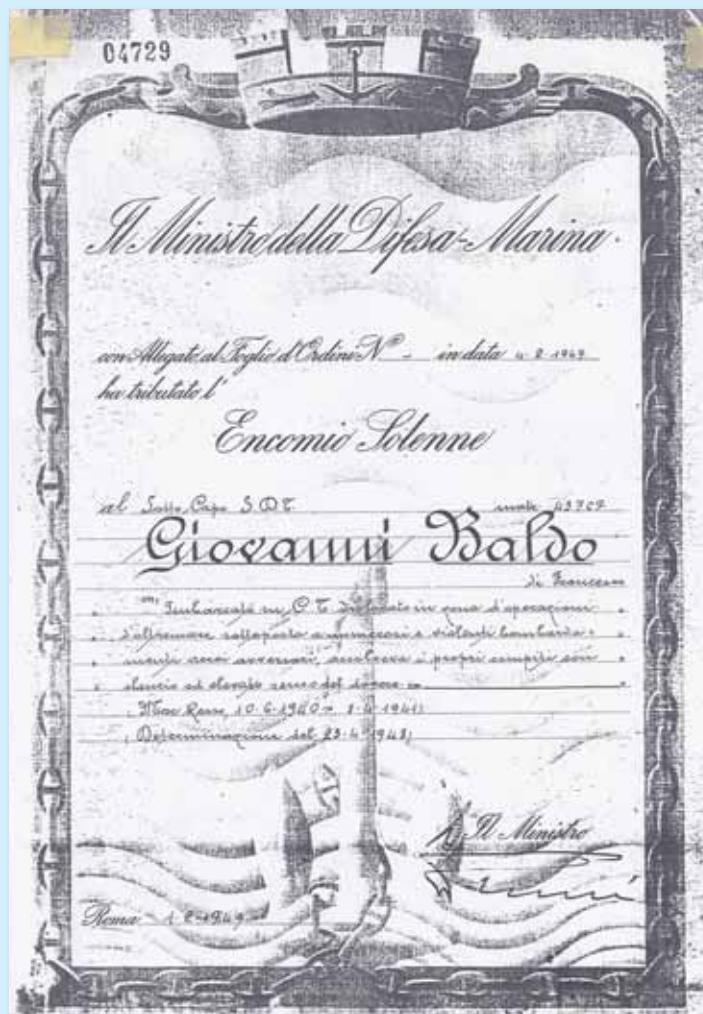 04729
Il Ministro della Difesa-Marina.
con Allegato al Foglio d'Ordini N° - in data 4-2-1949
ha tributato l'
Encomio Solenne
al Sotto Capo S.D.T. matr. 43707
Giovanni Baldo
di Francesco
"Imbarcato su C.T. dislocato in zona d'operazioni
d'oltremare sottoposto a numerosi e violenti bombarda-
menti aerei avversari, assolveva i propri compiti con
slancio ed elevato senso del dovere"
(Mar Rosso, 10-6-1940 - 8-4-1941)
(Determinazione del 23-4-1948)
Il Ministro
Roma 1-2-1949